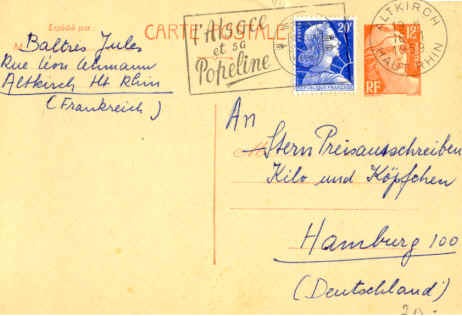 Expédié par
CARTE POSTALE
M
Baltres Jules
Rue Léon Lehmann
Altkirch Ht Rhin
(Frankreich)
l'Alsace
et sa
Popeline
20F
RÉPUBLIQUE FRANÇAISE
12F
RF
ALTKIRCH
HAUT-RHIN
An
Stern Preisausschreiben
Kilo und Köpfchen
Hamburg 100
(Deutschland)